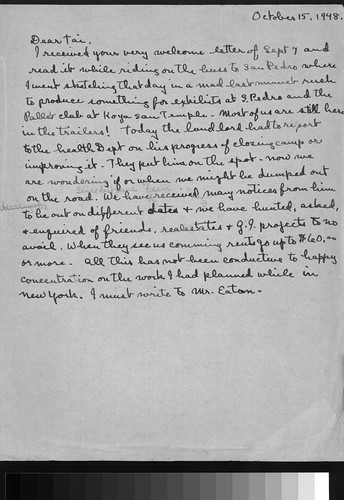 October 15, 1948.
Dear Tai.
I received your very welcome letter of Sept 7 and
read it while riding on the buss to San Pedro where
I went sketching that day in a mad last minuet rush
to produce something for exhibits at S. Pedro and the
Pallet club at Koya San Temple. Most of us are still here
in the trailers! Today the landlord had to report
to the health Dept on his progress of closing camp or
improving it. They put him on the spot - now we
are wondering if or when we might be dumped out
on the road. We have received many notices from him
to be out on different dates & we have hunted, asked,
& enquired of friends, realestates & G.I. projects to no
avail. When they see us comming rents go up to $60.00
or more. All this has not been conductive to happy
concentration on the work I had planned while in
New York. I must write to Mr. Eaton.